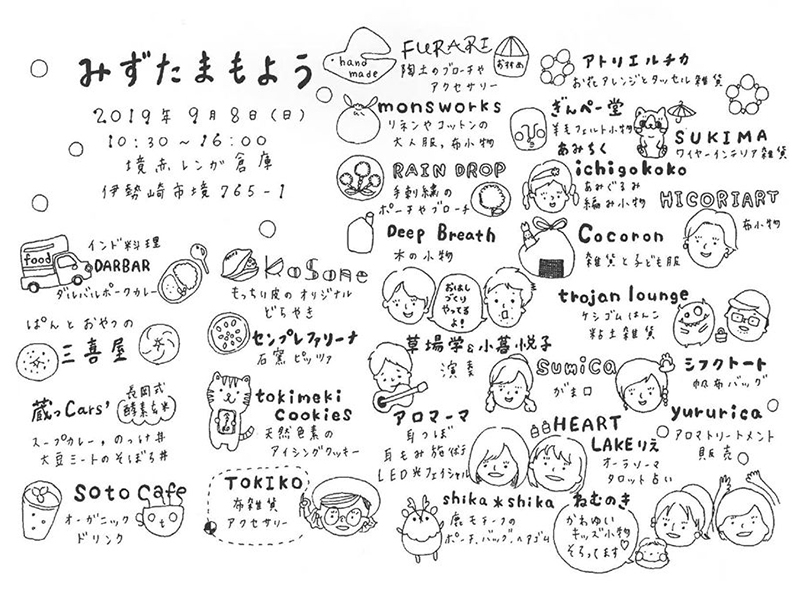 みずたまもよう
2019年9月8日(日)
10:30～16:00
境赤レンガ倉庫
伊勢崎市境765-1
food
インド料理
DARBAR
ダルバルポークカレー
ぱんとおやつの
三喜屋
蔵っCars'
長岡式
酵素玄米
スープカレー,のっけ丼
大豆ミートのそぼろ丼
soto cafe
オーガニック
ドリンク
KoSame
もっちり皮のオリジナル
どらやき
センプレファリーナ
石窯ピッツァ
tokimeki
cookies
天然色素の
アイシングクッキー
TOKIKO
布雑貨
アクセサリー
hand
made
FURARI
陶土のブローチや
アクセサリー
おすすめ
monsworks
リネンやコットンの
大人服,布小物
RAIN DROP
手刺繍の
ポーチやブローチ
Deep Breath
木の小物
おはし
づくり
やってる
よ!
草場学&小暮悦子
演奏
アロマーマ
耳つぼ
耳もみ施術
LED光フェイシャル
shika＊shika
鹿モチーフの
ポーチ,バッグ,ヘアゴム
アトリエルチカ
お花アレンジとタッセル雑貨
ぎんぺー堂
羊毛フェルト小物
あみちく
SUKIMA
ワイヤーインテリア雑貨
ichigokoko
あみぐるみ
編み小物
HICORIART
布小物
Cocoron
雑貨と子ども服
trojan lounge
ケシゴムはんこ
粘土雑貨
sumica
がま口
シフクトート
帆布バッグ
HEART
LAKEりえ
オーラソーマ
タロット占い
yururica
アロマトリートメント
販売
ねむのき
かわゆい
キッズ小物
そろってます♡